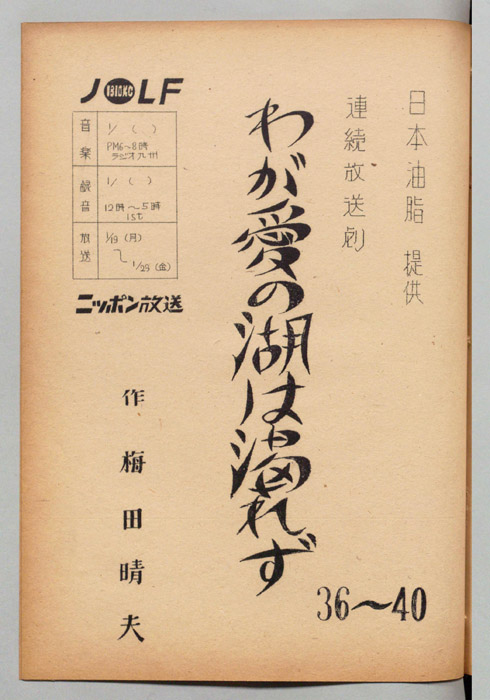 日本油脂 提供
連続放送劇
わが愛の湖は涸れず
36〜40
JOLF
1310KC
音楽 1/ ( )
PM6〜8時
ラジオ九州
録音 1/ ( )
12時〜5時
1st
放送 1/19 (月)
〜1/29 (金)
ニッポン放送
作 梅田晴夫